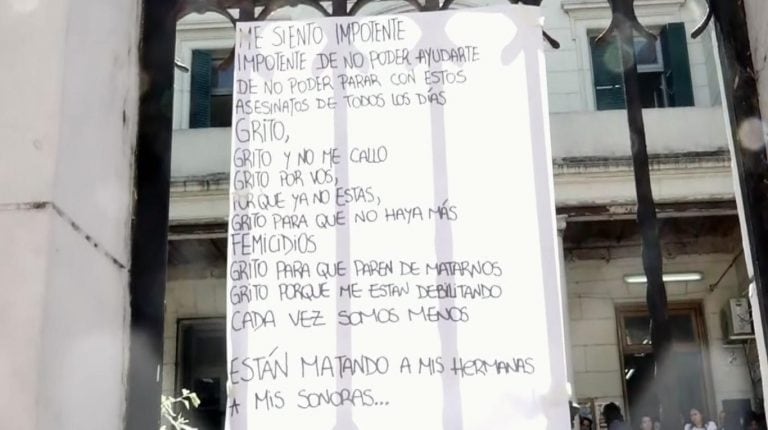 ME SIENTO IMPOTENTE
IMPOTENTE DE NO PODER AYUDARTE
DE NO PODER PARAR CON ESTOS
ASESINATOS DE TODOS LOS DÍAS
GRITO,
GRITO Y NO ME CALLO
GRITO POR VOS,
PORQUE YA NO ESTAS,
GRITO PARA QUE NO HAYA MÁS
FEMICIDIOS
GRITO PARA QUE PAREN DE MATARNOS
GRITO PORQUE ME ESTAN DEBILITANDO
CADA VEZ SOMOS MENOS
ESTÁN MATANDO A MIS HERMANAS
A MIS SONORAS...